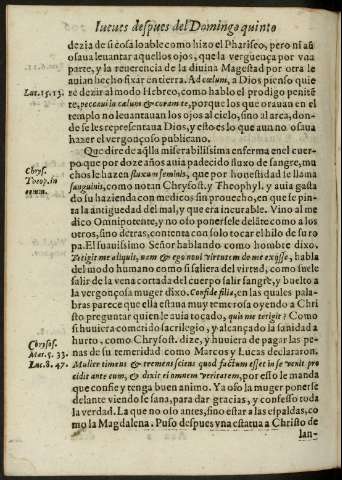 Iueues despues del Domingo quinto
dezia de si cosa loable como hizo el Phariseo, pero ni aũ
osaua leuantar aquellos ojos, que la verguença por vna
parte, y la reuerencia de la diuina Magestad por otra le
auian hecho fixar en tierra. Ad cælum, a Dios pienso quie
Luc. 15. 13. re dezir al modo Hebreo, como hablo el prodigo penitẽ
te, peccaui in cælum & coram te, porque los que orauan en el
templo no leuantauan los ojos al cielo, sino al arca, don-
de se les representaua Dios, y esto es lo que aun no osaua
hazer el vergonçoso publicano.
Que dire de aq̃lla miserabilissima enferma en el cuer-
po que por doze años auia padecido fluxo de sangre, mu
Chrys. Theop. in comm. chos le hazen fluxum seminis, que por honestidad le llama
sanguinis, como notan Chrysost. y Theophyl. y auia gasta
do su hazienda con medicos sin prouecho, en que se pin-
ta la antiguedad del mal, y que era incurable. Vino al me
dico Omnipotente, y no oso ponersele delãte como a los
otros, sino detras, contenta con solo tocar el hilo de su ro
pa. El suauissimo Señor hablando como hombre dixo.
Tetigit me aliquis, nam & ego noui virtutem de me exijsse, habla
del modo humano como si saliera del virtud, como suele
salir de la vena cortada del cuerpo salir sangre, y buelto a
la vergonçosa muger dixo. Confide filia, en las quales pala-
bras parece que ella estaua muy temerosa oyendo a Chri
sto preguntar quien le auia tocado, quis me tetigit? Como
si huuiera cometido sacrilegio, y alcançado la sanidad a
Chrysos. Mar. 5. 33. Luc. 8. 47. hurto, como Chrysost. dize, y huuiera de pagar las pe-
nas de su temeridad como Marcos y Lucas declararon.
Mulier timens & tremens sciens quod factum esset in se venit pro
cidit ante eum, & dixit ei omnem veritatem, por esso le manda
que confie y tenga buen animo. Ya osò la muger ponerse
delante viendose sana, para dar gracias, y confesso toda
la verdad. La que no oso antes, sino estar a las espaldas, co
mo la Magdalena. Puso despues vna estatua a Christo de
lan-